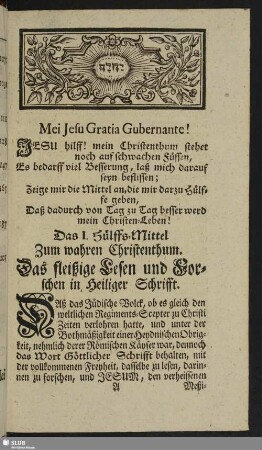 יהוה
Mei Jesu Gratia Gubernante!
JESU hilff! mein Christenthum stehet
noch auf schwachen Füssen,
Es bedarff viel Besserung, laß mich darauf
seyn beflissen;
Zeige mir die Mittel an, die mir darzu Hülf-
fe geben,
Daß dadurch von Tag zu Tag besser werd
mein Christen-Leben!
Das I. Hülffs-Mittel
Zum wahren Christenthum.
Das fleißige Lesen und For-
schen in Heiliger Schrifft.
DAß das Jüdische Volck, ob es gleich den
weltlichen Regiments-Scepter zu Christi
Zeiten verlohren hatte, und unter der
Bothmäßigkeit einer Heydnischen Obrig-
keit, nehmlich derer Römischen Käyser war, dennoch
das Wort Göttlicher Schrifft behalten, mit
der vollkommenen Freyheit, dasselbe zu lesen, darin-
nen zu forschen, und JESUM, den verheissenen
A Meßi-
SLUB